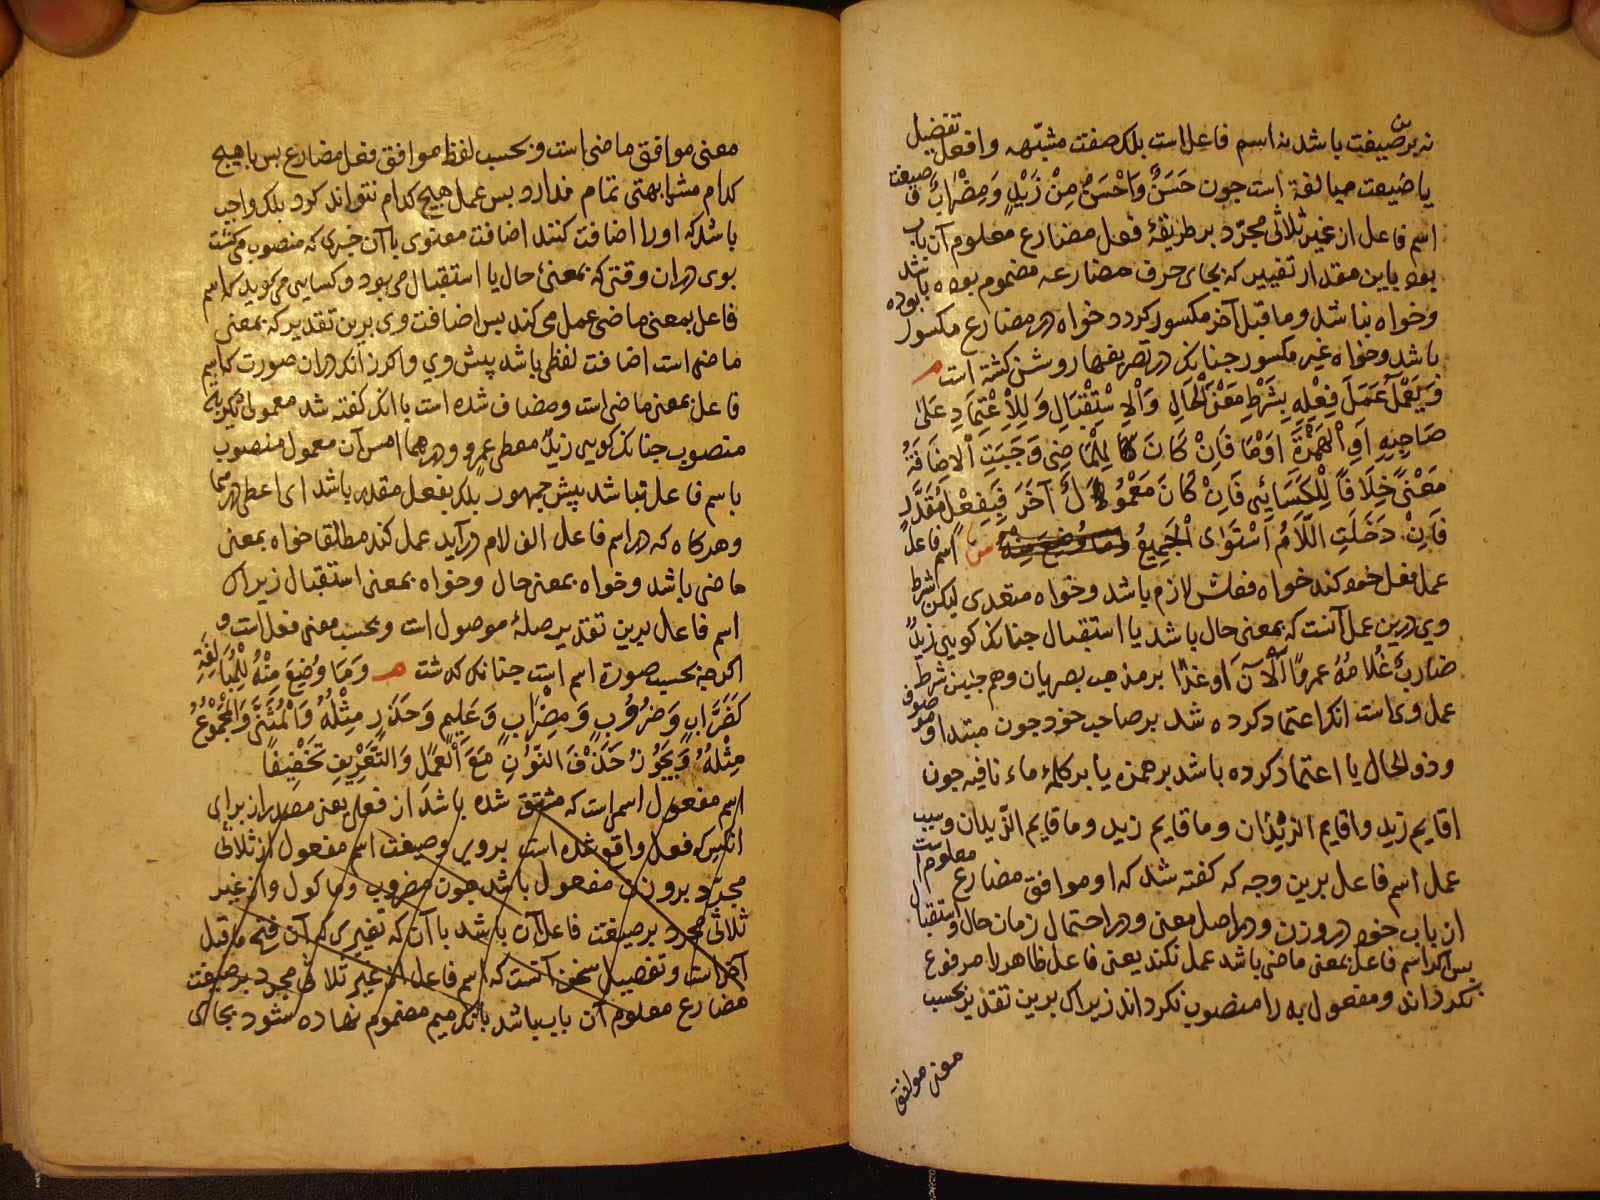 نه برین صیغت باشد نه اسم فاعل است بلکه صفت مشبّهه وافعل تفضیل
یا صیغت مبالغة است جون حَسَنٌ وَاَحْسَنُ مِنْ زَیْلٍ وَمِضْرَابٌ وصیغت
اسم فاعل از غیر ثلاثی مجرّد بر طریقهٔ فعل مضارع معلوم آن باب
بود باین مقدار تغییر که بجای حرف مضارعه مضموم بوده باشد
وخواه نباشد وما قبل آخر مکسور کردد خواه در مضارع مکسور بوده
باشد وخواه غیر مکسور جنانکه در تصریفها روشن کشته است م
وَیَعْمَلُ عَمَلَ فِعْلِهِ بِشَرْطِ مَعْنَی الْحَالِ وَالْاِسْتِقْبَالِ وَلِلْاِعْتِمَادِ عَلَی
صَاحِبِهِ اَوِ الْهَمْزَةِ اَوْمَا فَاِنْ کَانَ لِلْمَاضِی وَجَبَتِ الْاِضَافَةُ
مَعْنًی خِلَافًا لِلْکَسَائِیِ فَاِنْ کَانَ مَعْمُولٌ آخَرَ فَبِفِعْلٍ مُقَدَّرٍ
فَاِنْ دَخَلَتِ اللَّامُ اسْتَوَی الْجَمِیعُ وَمَا وُضِعَ مِنْهُ ش اسم فاعل
عمل فعل خود کند خواه فعلش لازم باشد وخواه متعدی لیکن شرط
وی درین عمل آنست که بمعنی حال باشد یا استقبال جنانکه کویی زیدٌ
ضاربٌ غُلامُهُ عمروًا اَلْآنَ اَو غدًا بر مذهب بصریان وهم جنین شرط
عمل وی است انکه اعتماد کرده شد بر صاحب خود جون مبتدا وموصوف
وذو الحال یا اعتماد کرده باشد بر همزه یا بر کلمهٔ ماء نافیه جون
اقایم زید واقایم الزیدان وما قایم زید وما قایم الزیدان وسبب
عمل اسم فاعل برین وجه که کفته شد که او موافق مضارع معلوم است
از باب خود در وزن ودر اصل معنی ودر احتمال زمان حال واستقبال
بس اکر اسم فاعل بمعنی ماضی باشد عمل نکند یعنی فاعل ظاهر را مرفوع
نکرداند ومفعول به را منصوب نکرداند زیراک برین تقدیر بحسب
معنی موافق
معنی موافق ماضی است وبحسب لفظ موافق فعل مضارع بس با هیج
کدام مشابهتی تمام ندارد بس عمل هیج کدام نتواند کرد بلکه واجب
باشد که اورا اضافت کنند اضافت معنوی با آن جیزی که منصوب می کشت
بوی در ان وقتی که بمعنیٔ حال یا استقبال می بود وکسایی می کوید که اسم
فاعل بمعنی ماضی عمل می کند بس اضافت وی برین تقدیر که بمعنی
ماضی است اضافت لفظی باشد پیش وی واکر زانکه در ان صورت که اسم
فاعل بمعنی ماضی است ومضاف شده است با انکه کفته شد معمولی دیکر بود
منصوب جنانکه کویی زیدٌ معطی عمرٍو درهما امس آن معمول منصوب
باسم فاعل نباشد پیش جمهور بلکه بفعل مقدر باشد ای اعطی درهما
وهر کاه که در اسم فاعل الف لام در آید عمل کند مطلقا خواه بمعنی
ماضی باشد وخواه بمعنی حال وخواه بمعنی استقبال زیراک
اسم فاعل برین تقدیر صلهٔ موصول است وبحسب معنی فعل است و
اکر جه بحسب صورة اسم است جنانکه کذشت م وَمَا وُضِعَ مِنْهُ لِلْمُبَالَغَةِ
کَضَرَّابٍ وَضَرُوبٍ وَمِضْرَابٍ وَعَلِیمٍ وَحَذِرٍ مِثْلُهُ وَالْمُثَنَّی وَالْمَجْمُوعُ
مِثْلُهُ وَیَجُوزُ حَذْفُ النُّونِ مَعَ الْعَمَلِ وَالتَّعْرِیفِ تَخْفِیفًا
اسم مفعول اسمی است که مشتق شده باشد از فعل یعنی مصدر از برای
انکس که فعل واقع شده است بر وی وصیغت اسم مفعول از ثلاثی
مجرّد بر وزن مفعول باشد جون مضروب وماکول واز غیر
ثلاثی مجرد بر صیغت فاعل آن باشد با آن که تغییری که آن فتح ما قبل
آخر است وتفصیل سخن آنست که اسم فاعل از غیر ثلاثی مجرد بر صیغت
مضارع معلوم آن باب باشد بانکه میم مضموم نهاده شود بجای